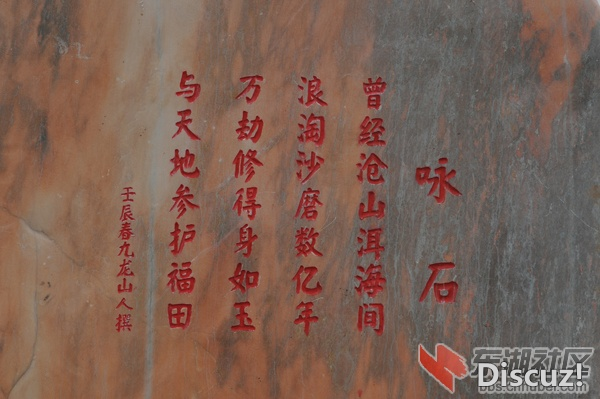 咏石
曾经沧山洱海间
浪淘沙磨数亿年
万劫修得身如玉
与天地参护福田
壬辰春九龙山人撰
东湖社区
Discuz!